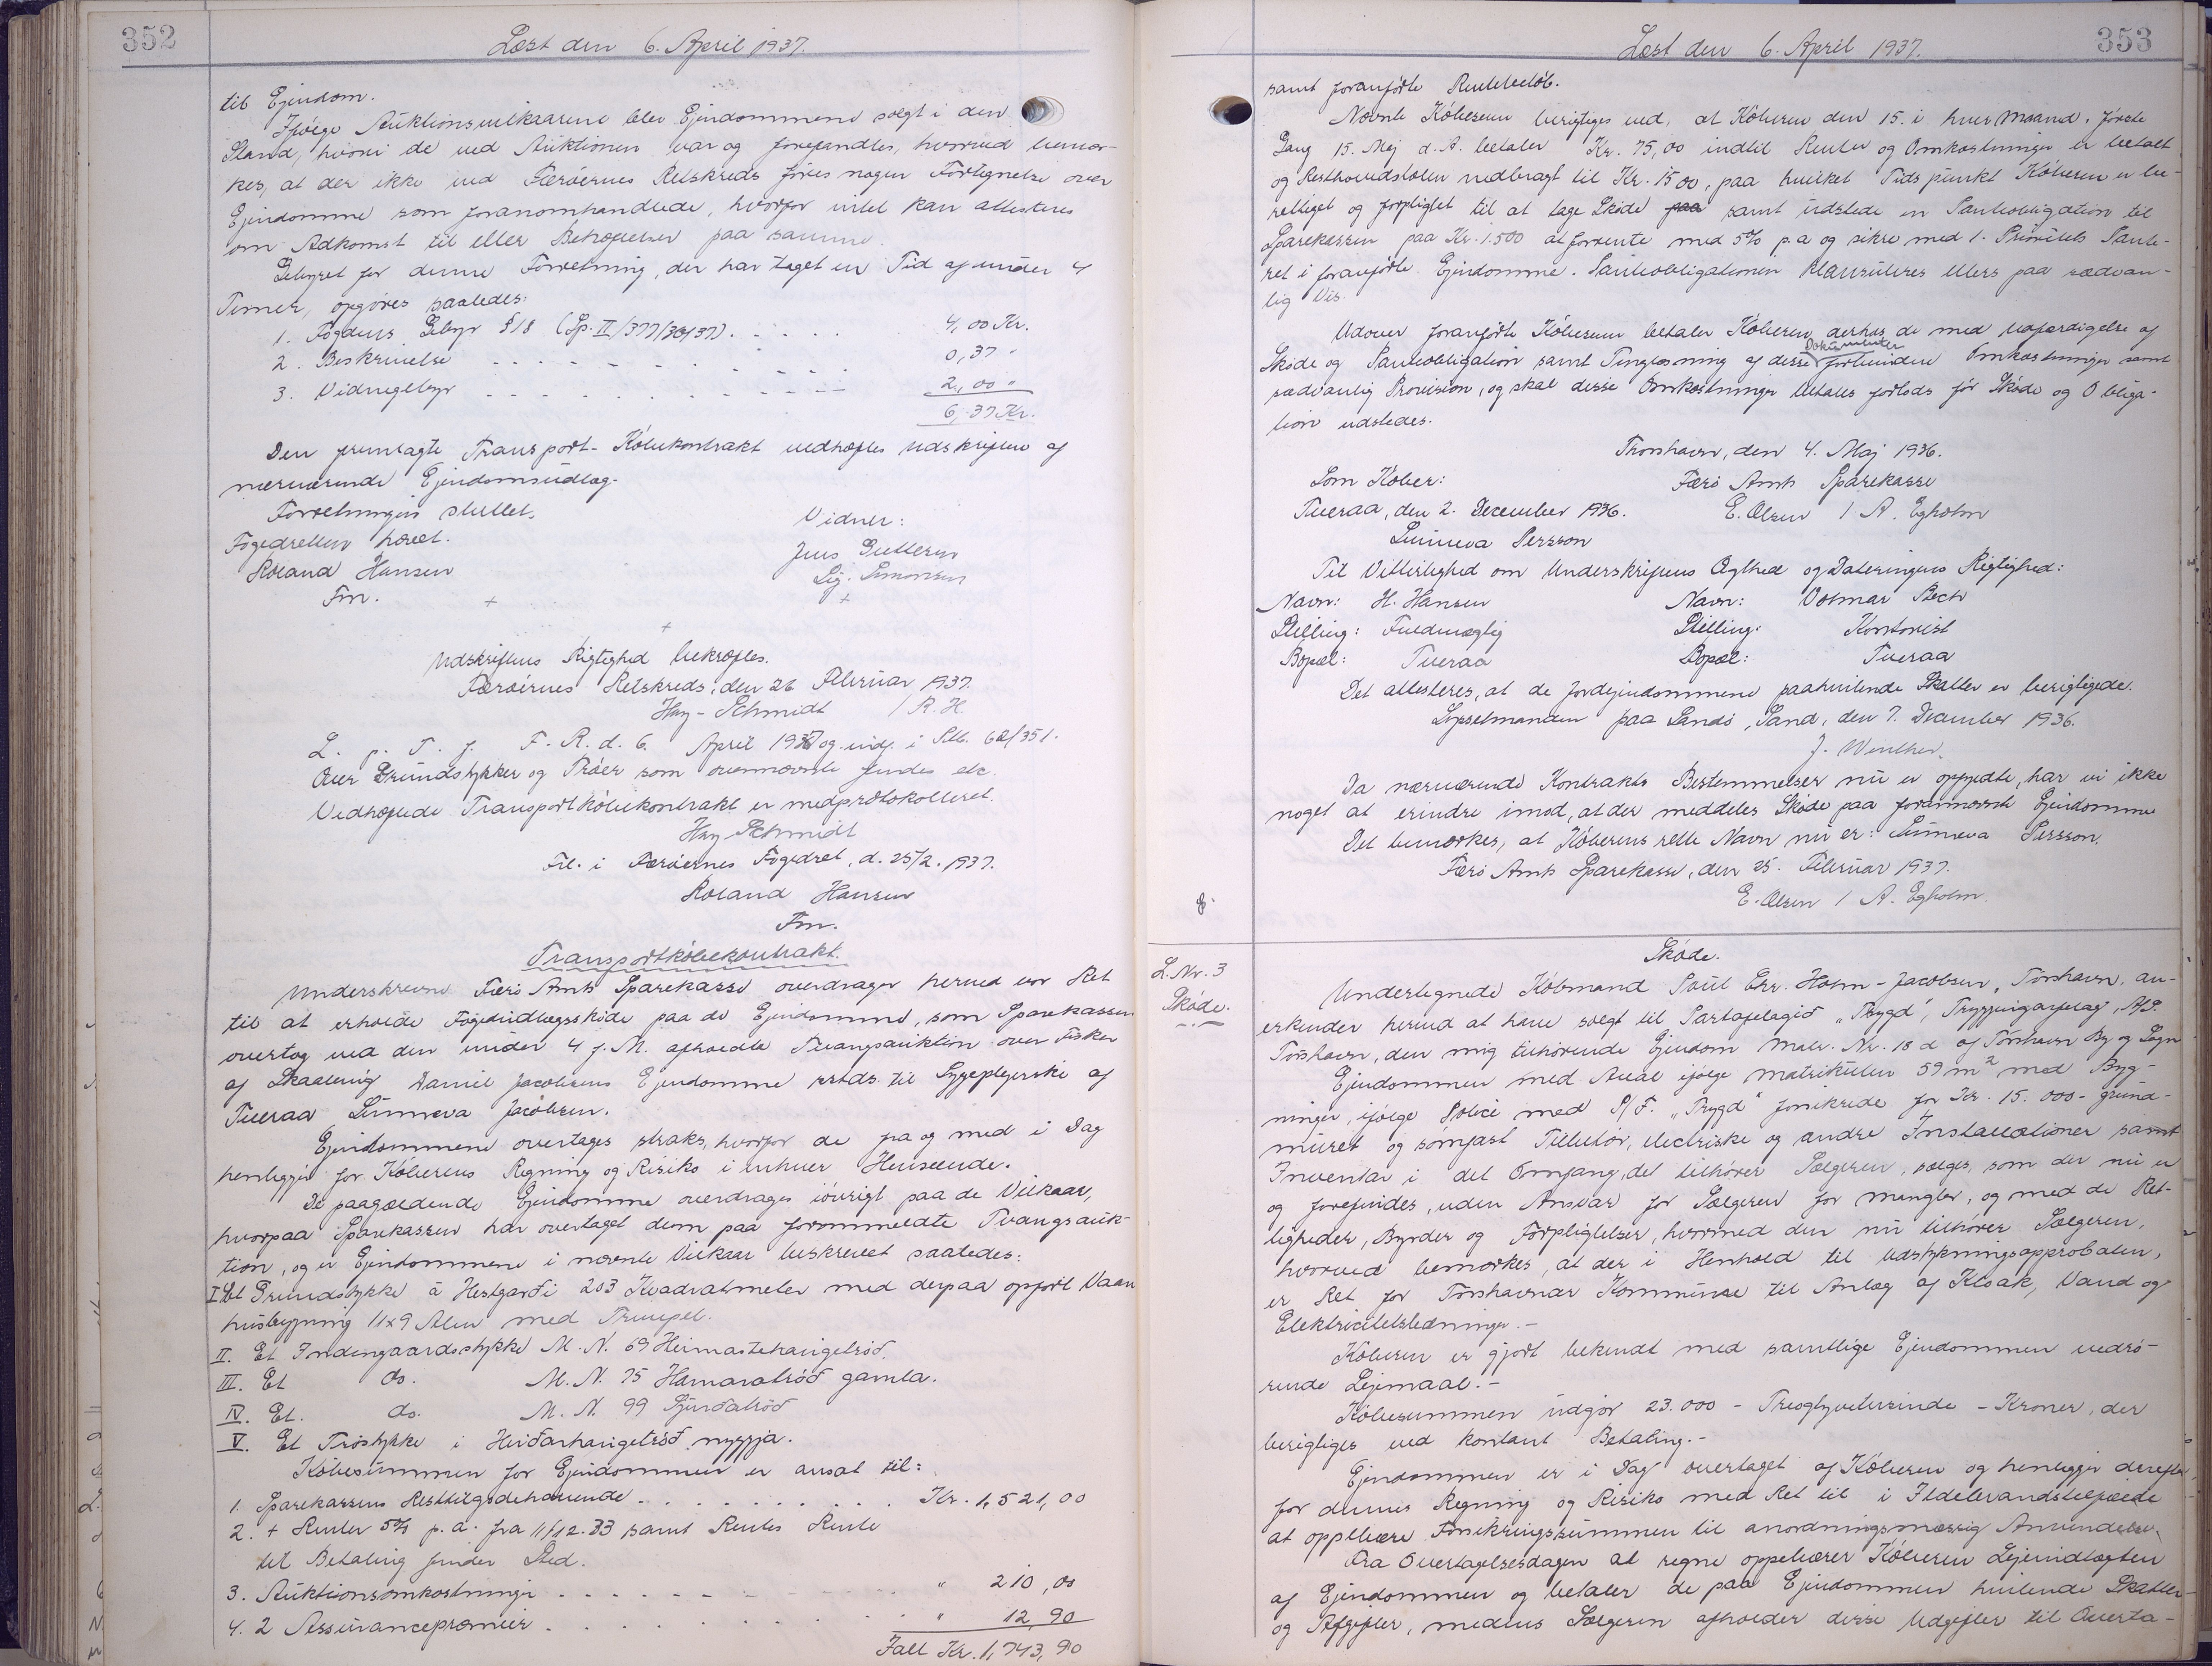 352
Læst den 6. April 1937.
til Ejendom.
Ifølge Auktionsvilkaarene blev Ejendommene solgt i den
Stand, hvori de ved Auktionen var og forefandtes, hvorved bemær-
kes, at der ikke ved Færøernes Retskreds føres nogen Fortegnelse over
Ejendomme som foranomhandlede, hvorfor intet kan attesteres
om Adkomst til eller Behæftelser paa samme.
Gebyret for denne Forretning, der har taget en Tid af under 4
Timer, opgøres saaledes:
1. Fogdens Gebyr § 18 (Sp. II/377/30/37). . . . . 4,00 Kr.
2. Beskrivelse . . . . . . . . . 0,37 "
3. Vidnegebyr . . . . . . . . . 2,00 "
6,37 Kr.
Den fremlagte Transport-Købekontrakt vedhæftes Udskriften af
nærværende Ejendomsudlæg.
Forretningen sluttet.
Vidner:
Fogedretten hævet.
Jens Guttesen
Roland Hansen
Sig. Simonsen
Fm. + +
+
Udskriftens Rigtighed bekræftes.
Færøernes Retskreds, den 26 Februar 1937.
Hay-Schmidt / R. H.
L. p. T. f. F. R. d. 6. April 1937 og indf. i S.Pb. 62/351.
Over Grundstykker og Trøer som ovennævnte findes etc.
Vedhæftede Transportkøbekontrakt er medprotokolleret.
Hay-Schmidt
Frl. i Færøernes Fogedret, d. 25/2. 1937.
Roland Hansen
Fm.
Transportkøbekontrakt.
Underskrevne Færø Amts Sparekasse overdrager herved vor Ret
til at erholde Fogedudlægsskøde paa de Ejendomme, som Sparekassen
overtog ved den under 4 f. M. afholdte Tvangsauktion over Fisker
af Skaalevig Daniel Jacobsens Ejendomme sstds. til Sygeplejerske af
Tveraa Sunneva Jacobsen.
Ejendommene overtages straks, hvorfor de fra og med i Dag
henligger for Køberens Regning og Risiko i enhver Henseende.
De paagældende Ejendomme overdrages iøvrigt paa de Vilkaar,
hvorpaa Sparekassen har overtaget dem paa forommeldte Tvangsauk-
tion, og er Ejendommene i nævnte Vilkaar beskrevet saaledes:
I. Et Grundstykke á Hestgarði 203 Kvadratmeter med derpaa opført Vaan
husbygning 11x9 Alen med Trempel.
II. Et Indengaardsstykke M. N. 69 Heimastehaugetrøð.
III. Et do. M. N. 75 Hamaratrøð gamla.
IV. Et. do. M. N. 99 Sjúrðatrøð
V. Et Trøstykke i Heiðarhaugetrøð nyggja.
Købesummen for Ejendommen er ansat til:
1. Sparekassens Resttilgodehavende . . . . . . . . . Kr. 1,521,00
2. + Renter 5% p. a. fra 11/12. 33 samt Rentes Rente
til Betaling finder Sted.
3. Auktionsomkostninger . . . . . . . . " 210,00
4. 2 Assurancepræmier . . . . . . . . " 12,90
Ialt Kr. 1,743,90
353
Læst den 6. April 1937.
samt foranførte Rentebeløb.
Nævnte Købesum berigtiges ved, at Køberen den 15. i hver Maaned, første
Gang 15. Maj d. A. betaler Kr. 75,00 indtil Renter og Omkostninger er betalt
og Resthovedstolen nedbragt til Kr. 1500, paa hvilket Tidspunkt Køberen er be-
rettiget og forpligtet til at tage Skøde paa samt udstede en Panteobligation til
Sparekassen paa Kr. 1.500 at forrente med 5% p. a og sikre med 1. Prioritets Pante-
ret i foranførte Ejendomme. Panteobligationen klausuleres ellers paa sædvan-
lig Vis.
Udover foranførte Købesum betaler Køberen derhos de med Udfærdigelse af
Skøde og Panteobligation samt Tinglæsning af disse Dokumenter forbundne Omkostninger samt
sædvanlig Provision, og skal disse Omkostninger betales forlods før Skøde og Obliga-
tion udstedes.
Thorshavn, den 4. Maj 1936.
Som Køber: Færø Amts Sparekasse
Tveraa, den 2. December 1936. E. Olsen / A. Egholm
Sunneva Persson
Til Vitterlighed om Underskriftens Ægthed og Dateringens Rigtighed:
Navn: H. Hansen Navn: Volmar Bech
Stilling: Fuldmægtig Stilling: Kontorist
Bopæl: Tveraa Bopæl: Tveraa
Det attesteres, at de Jordejendommene paahvilende Skatter er berigtigede.
Sysselmanden paa Sandø, Sand, den 7. December 1936.
J. Winther.
Da nærværende Kontrakts Bestemmelser nu er opfyldte, har vi ikke
noget at erindre imod, at der meddeles Skøde paa forannævnte Ejendomme
Det bemærkes, at Køberens rette Navn nu er: Sunneva Persson.
Færø Amts Sparekasse, den 25. Februar 1937.
E. Olsen / A. Egholm.
L. Nr. 3
Skøde.
Skøde.
Undertegnede Købmand Poul Chr. Holm-Jacobsen, Tórshavn, an-
erkender herved at have solgt til Partafelagið "Trygd", Tryggingarfelag, A/S.
Tórshavn, den mig tilhørende Ejendom Matr. Nr. 18 d af Tórshavn By og Sogn
Ejendommen med Areal ifølge Matrikulen 59 m2 med Byg-
ninger, ifølge Police med P/F. "Trygd" forsikrede for Kr. 15.000- grund-
muret og sømfast Tilbehør, electriske og andre Installationer samt
Inventar i det Omfang, det tilhører Sælgeren, sælges, som der nu er
og forefindes, uden Ansvar for Sælgeren for Mangler, og med de Ret-
tigheder, Byrder og Forpligtelser, hvormed den nu tilhører Sælgeren,
hvorved bemærkes, at der i Henhold til Udstykningsapprobalen,
er Ret for Tórshavnar Kommune til Anlæg af Kloak, Vand og
Elektricitetsledninger.-
Køberen er gjort bekendt med samtlige Ejendommen vedrø-
rende Lejemaal.-
Købesummen udgør 23.000 - Treogtyvetusinde - Kroner, der
berigtiges ved kontant Betaling.-
Ejendommen er i Dag overtaget af Køberen og henligger derefter
for dennes Regning og Risiko med Ret til i Ildebrandstilfælde
at oppebære Forsikringssummen til anordningsmæssig Anvendelse.
Fra Overtagelsesdagen at regne oppebærer Køberen Lejeindtægten
af Ejendommen og betaler de paa Ejendommen hvilende Skatter
og Afgifter, medens Sælgeren afholder disse Udgifter til Overta-